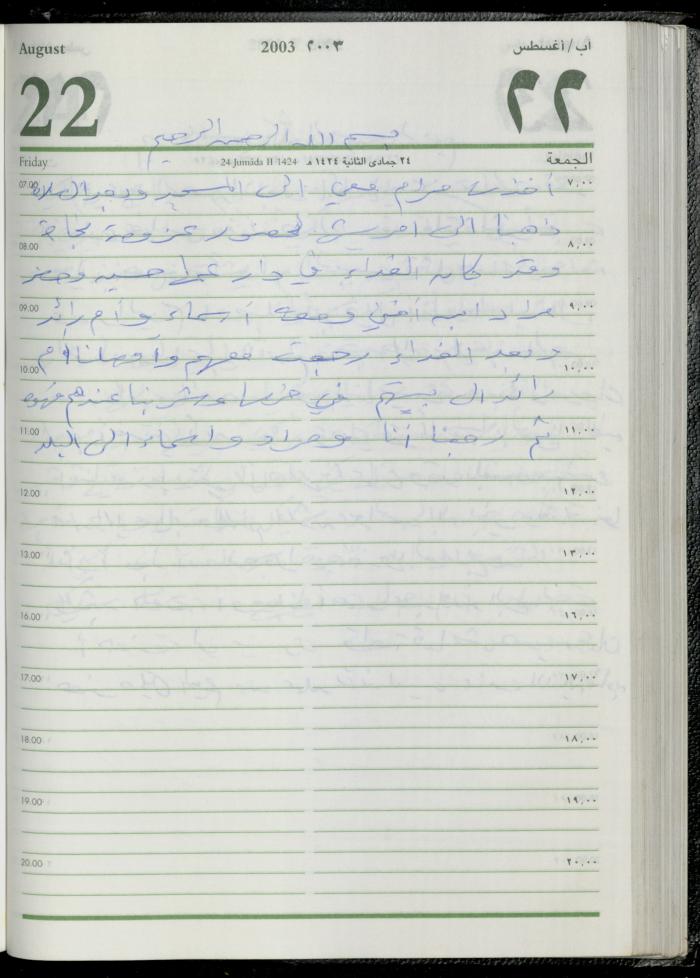 August 2003 ٢٠٠٣ آب/أغسطس
22 ٢٢
بسم الله الرحمن الرحيم
Friday 24 Jumāda II 1424 ٢٤ جمادى الثانية ١٤٢٤ هـ الجمعة
07.00 أخذت مرام معي الى المسجد وبعد الصلاة ٧,٠٠
ذهبنا الى لحضور عزومة نجاة
08.00 ٨,٠٠
وقد كان الغداء في دار عمها حسين وحضر
09.00 مراد ابن أختي ومعه أسماء وأم رائد ٩,٠٠
وبعد الغداء رجعت معهم وأوصلنا أم
10.00 ١٠,٠٠
رائد الى بيتهم في وشربنا عندهم قهوة
11.00 ثم رجعنا أنا ومراد واسماء الى البلد ١١,٠٠
12.00 ١٢,٠٠
13.00 ١٣,٠٠
16.00 ١٦,٠٠
17.00 ١٧,٠٠
18.00 ١٨,٠٠
19.00 ١٩,٠٠
20.00 ٢٠,٠٠